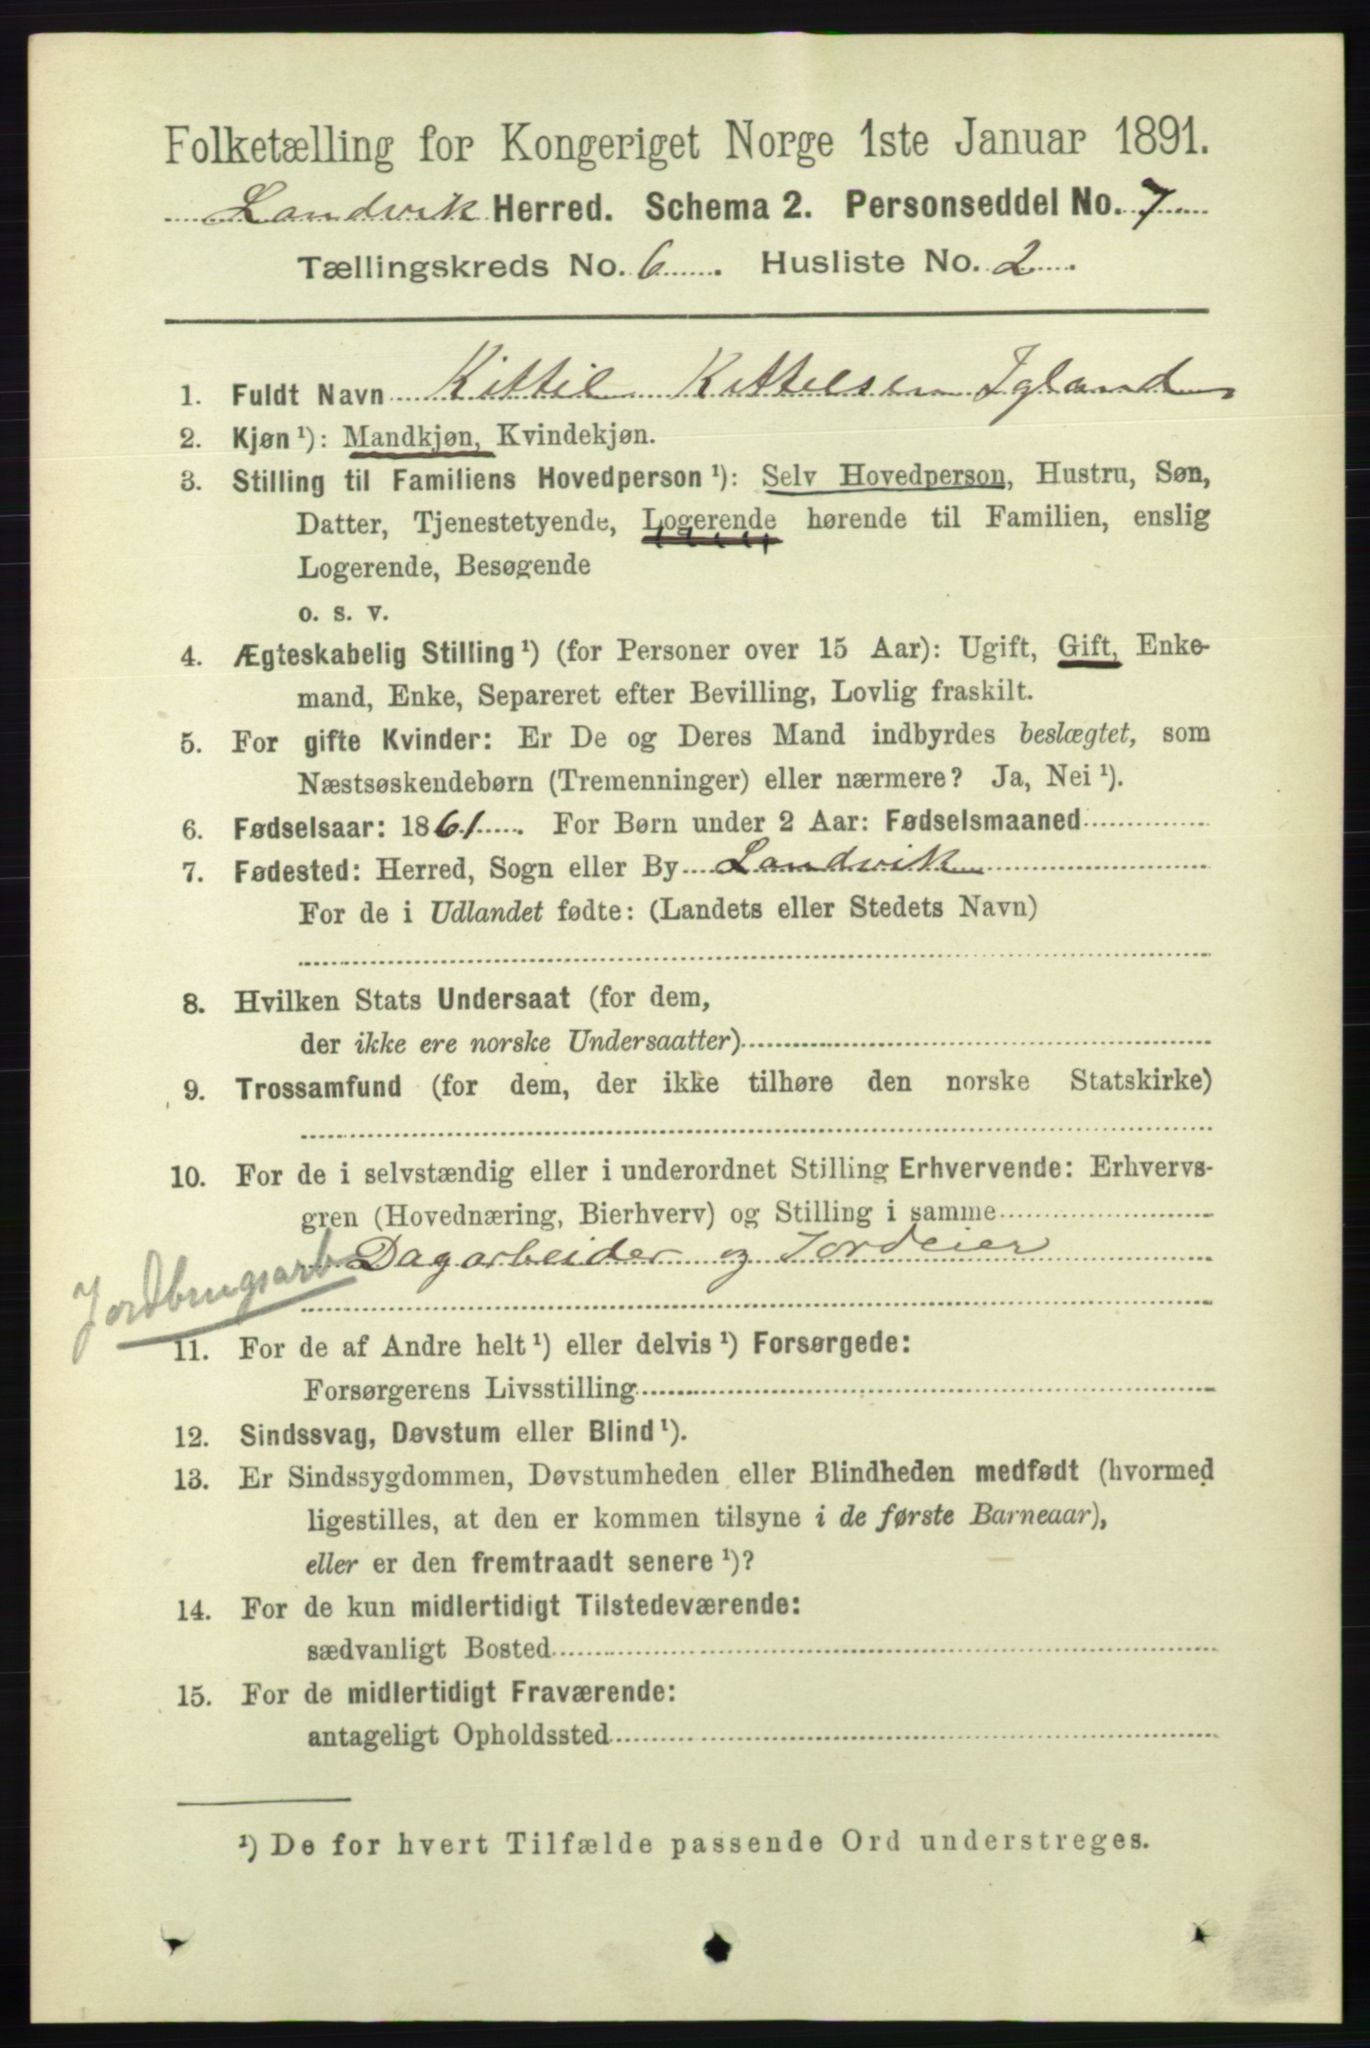 Folketælling for Kongeriget Norge 1ste Januar 1891.
Landvik Herred. Schema 2. Personseddel No. 7
Tællingskreds No. 6. Husliste No. 2.
1. Fuldt Navn Kittil Kittelsen Igland
2. Kjøn ¹): Mandkjøn, Kvindekjøn.
3. Stilling til Familiens Hovedperson ¹): Selv Hovedperson, Hustru, Søn,
Datter, Tjenestetyende, Logerende hørende til Familien, enslig
Logerende, Besøgende
o. s. v.
4. Ægteskabelig Stilling ¹) (for Personer over 15 Aar): Ugift, Gift, Enke-
mand, Enke, Separeret efter Bevilling, Lovlig fraskilt.
5. For gifte Kvinder: Er De og Deres Mand indbyrdes beslægtet, som
Næstsøskendebørn (Tremenninger) eller nærmere? Ja, Nei ¹).
6. Fødselsaar: 1861. For Børn under 2 Aar: Fødselsmaaned
7. Fødested: Herred, Sogn eller By Landvik
For de i Udlandet fødte: (Landets eller Stedets Navn)
8. Hvilken Stats Undersaat (for dem,
der ikke ere norske Undersaatter)
9. Trossamfund (for dem, der ikke tilhøre den norske Statskirke)
10. For de i selvstændig eller i underordnet Stilling Erhvervende: Erhvervs-
gren (Hovednæring, Bierhverv) og Stilling i samme
Dagarbeider og Jordeier
Jordbrugsarb
11. For de af Andre helt ¹) eller delvis ¹) Forsørgede:
Forsørgerens Livsstilling
12. Sindssvag, Døvstum eller Blind ¹).
13. Er Sindssygdommen, Døvstumheden eller Blindheden medfødt (hvormed
ligestilles, at den er kommen tilsyne i de første Barneaar),
eller er den fremtraadt senere ¹)?
14. For de kun midlertidigt Tilstedeværende:
sædvanligt Bosted
15. For de midlertidigt Fraværende:
antageligt Opholdssted
¹) De for hvert Tilfælde passende Ord understreges.